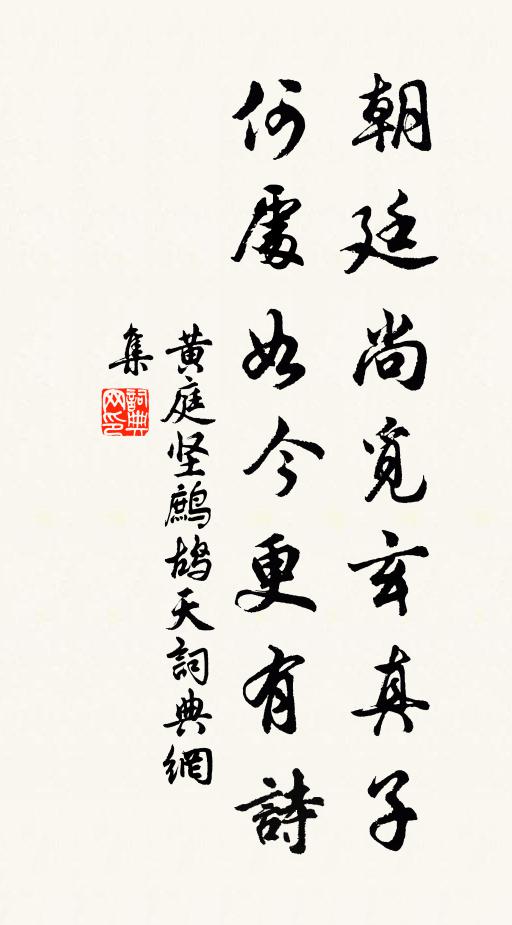 朝廷尚覓玄真子
何處如今更有詩
黃庭坚鷓鴣天詞典網
集
詞典
网印